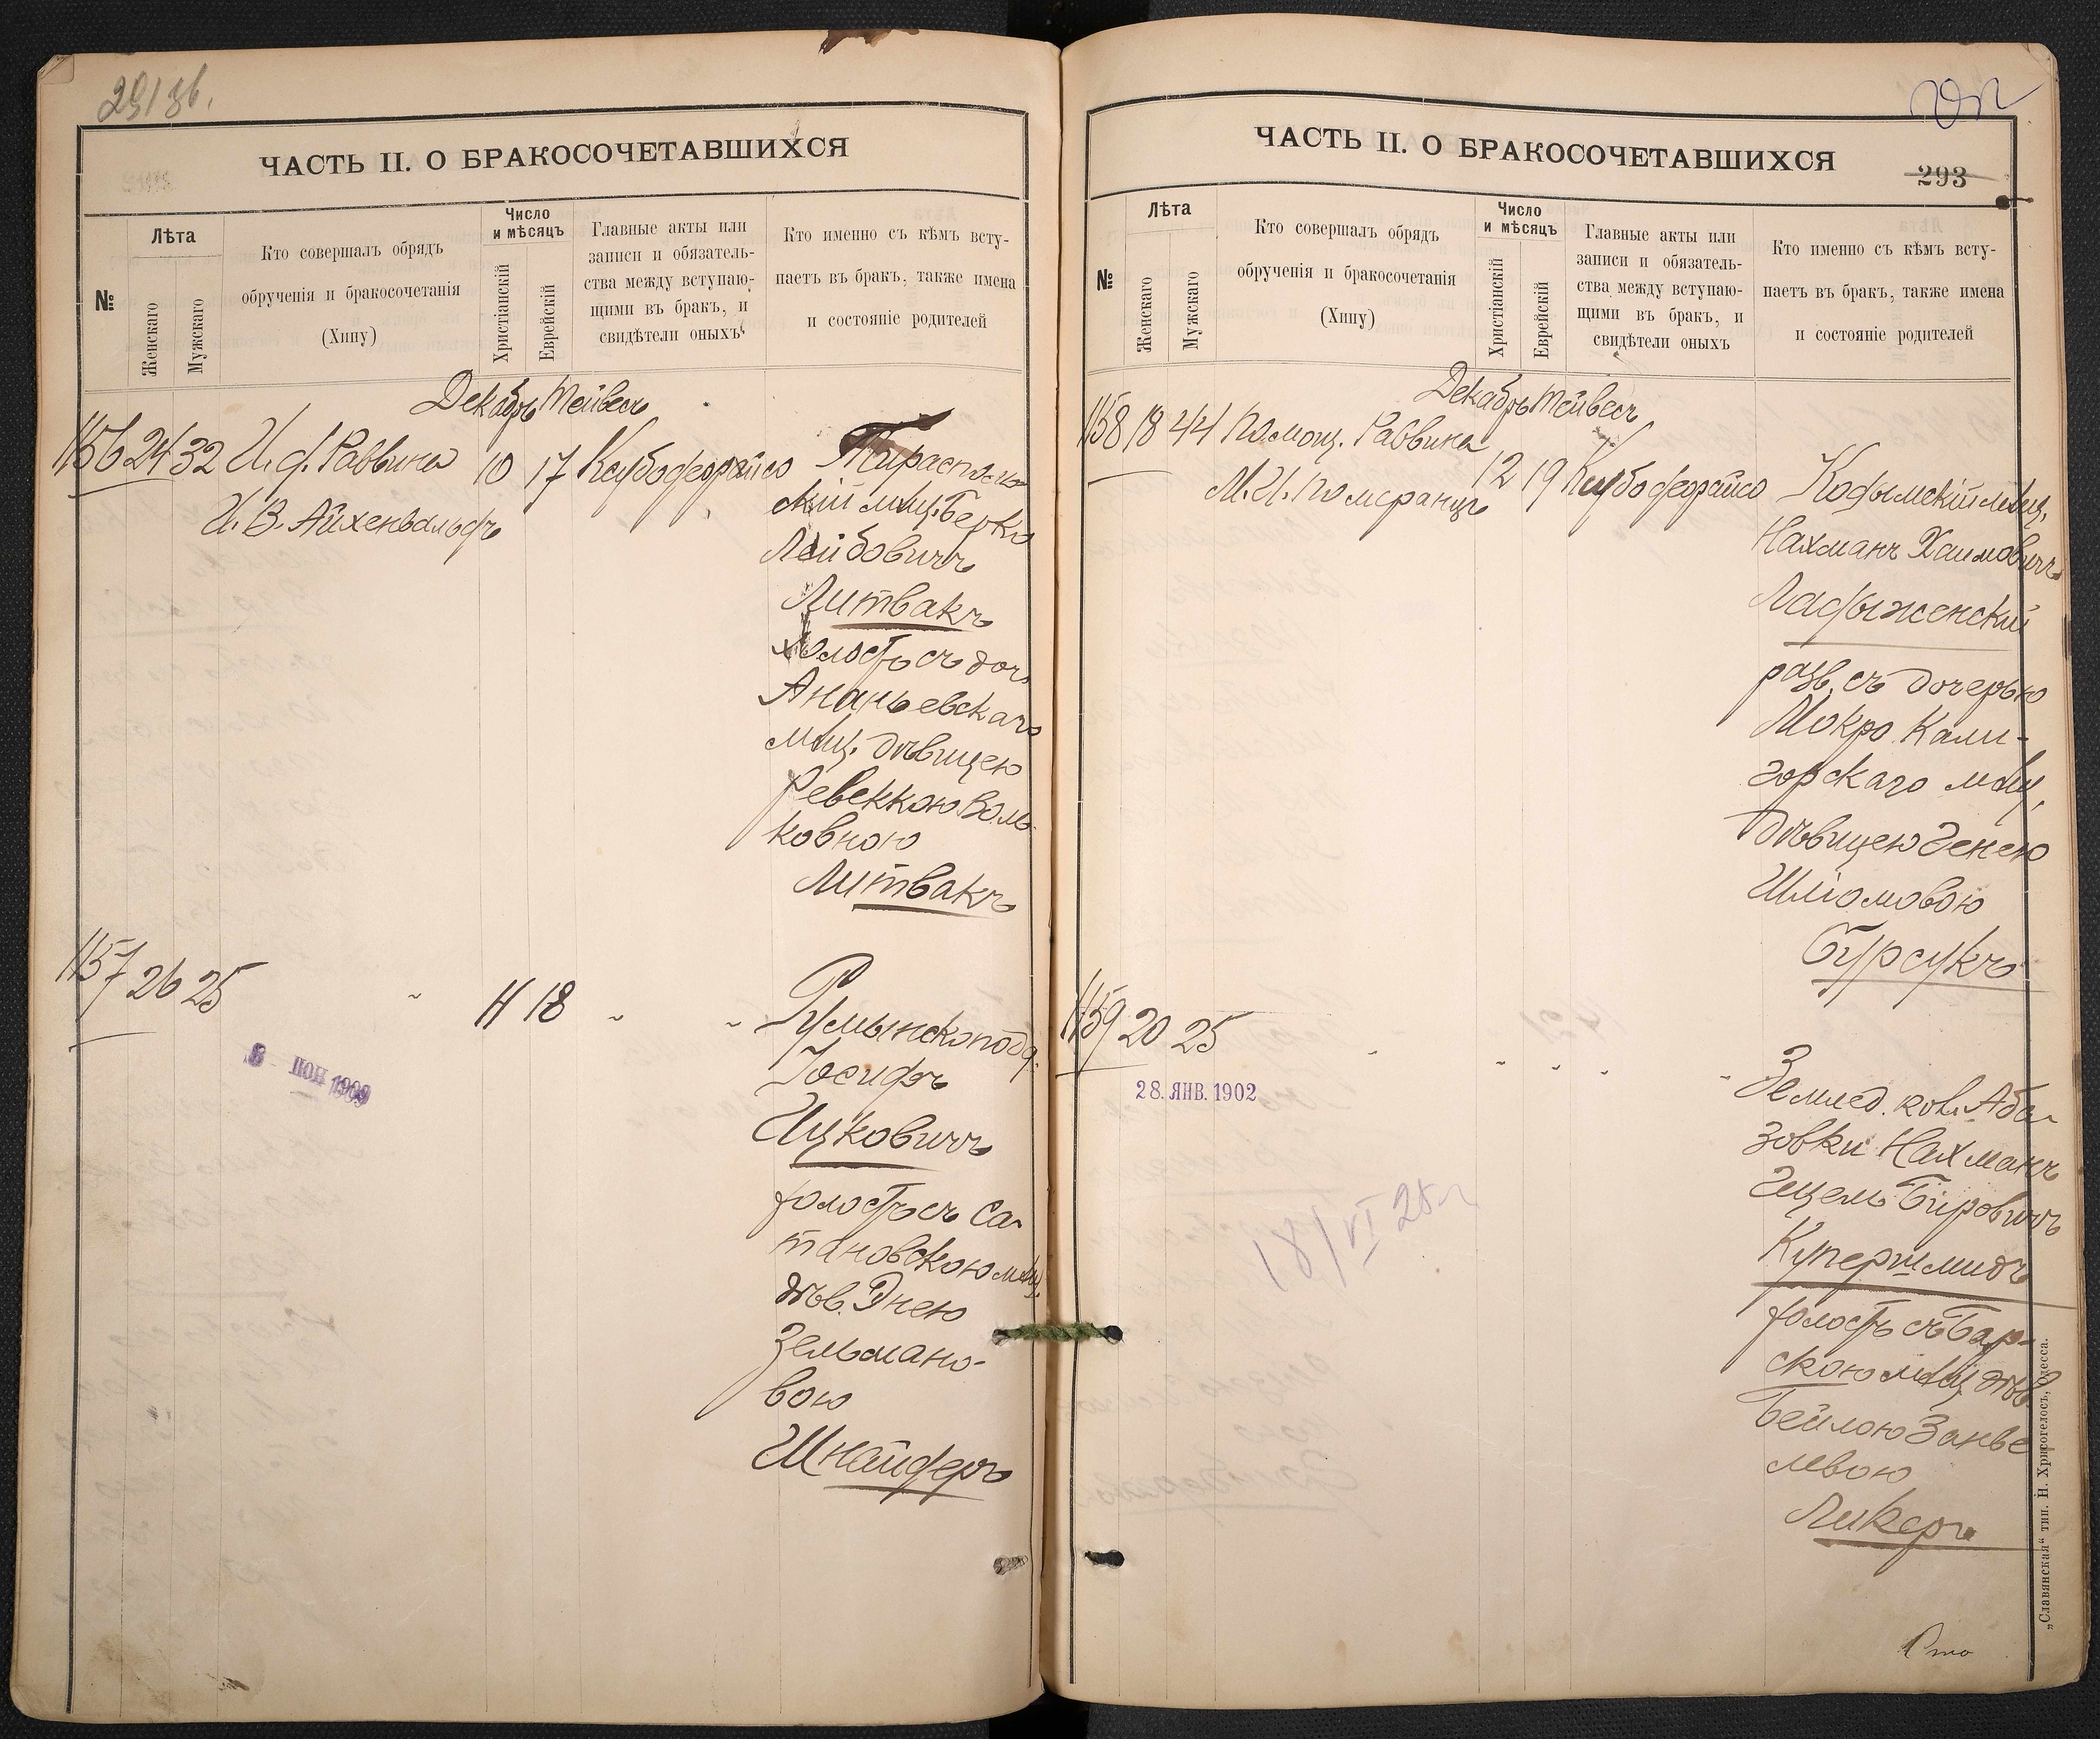 291 зв.
ЧАСТЬ II. О БРАКОСОЧЕТАВШИХСЯ
№
Лѣта
Женскаго
Мужскаго
Кто совершалъ обрядъ
обрученія и бракосочетанія
(Хипу)
Число
и мѣсяцъ
Христіанскій
Еврейскій
Главные акты или
записи и обязатель-
ства между вступаю-
щими въ бракъ, и
свидѣтели оныхъ
Кто именно съ кѣмъ всту-
паетъ въ бракъ, также имена
и состояніе родителей
Декабрь Тейвесъ
1156 24 32 И. д. Раввина 10 17
И. В. Айхенвальдъ
Тирасполь-
скій мѣщ. Берко
Лейбовичъ
Литвакъ
холостъ съ доч.
Ананьевскаго
мѣщ. дѣвицею
Ревеккою Воль-
ковною
Литвакъ
1157 26 25 11 18
Румынскоподд.
Іосифъ
Ицковичъ
холостъ съ Са-
тановскою мѣщ.
дѣв. Энею
Зельмано-
вою
Шнайдеръ
8 ІЮН 1909
ЧАСТЬ II. О БРАКОСОЧЕТАВШИХСЯ
293
№
Лѣта
Женскаго
Мужскаго
Кто совершалъ обрядъ
обрученія и бракосочетанія
(Хипу)
Число
и мѣсяцъ
Христіанскій
Еврейскій
Главные акты или
записи и обязатель-
ства между вступаю-
щими въ бракъ, и
свидѣтели оныхъ
Кто именно съ кѣмъ всту-
паетъ въ бракъ, также имена
и состояніе родителей
Декабрь Тейвесъ
1158 18 44 Помощ. Раввина 12 19
М. И. Померанцъ
Кодымскій мѣщ.
Нахманъ Хаимовичъ
Ладыженскій
разв. съ дочерью
Мокро Кали-
горскаго мѣщ.
дѣвицею Генею
Шліомовою
Бурсукъ
1159 20 25
28. ЯНВ. 1902
18/VI 25 г
Землед. кол. Аба-
зовки Нахманъ
Гецель Бировичъ
Купершмидъ
холостъ съ Бар-
скою мѣщ. дѣв.
Бейлою Занве-
левою
Ликеръ
„Славянская“ тип. Н. Хрисогелосъ, Одесса.